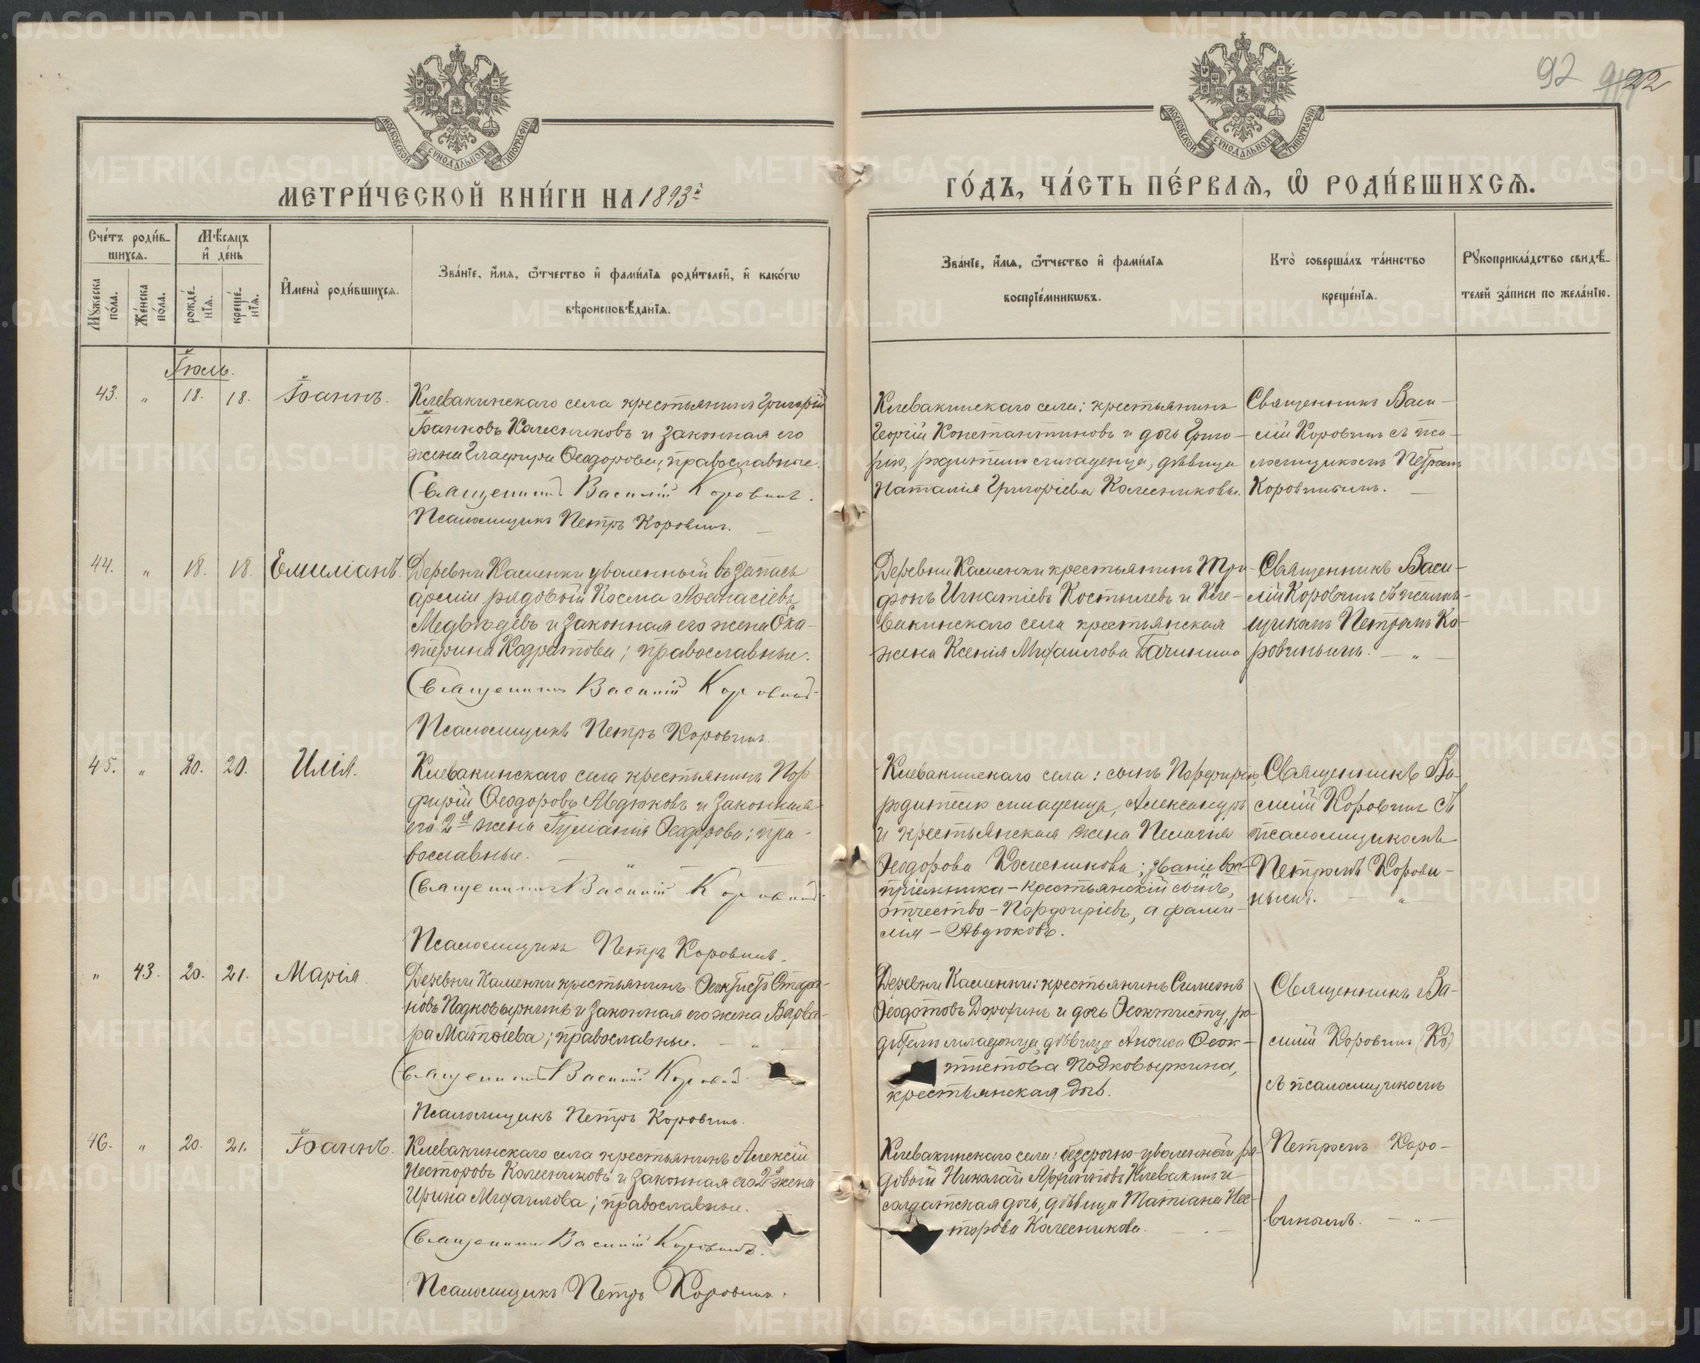 92 22
МОСКОВСКОЙ СѴНОДАЛЬНОЙ ТИПОГРАФІИ
МОСКОВСКОЙ СѴНОДАЛЬНОЙ ТИПОГРАФІИ
МЕТРИ́ЧЕСКОЙ КНИ́ГИ НА 1893й
ГО́ДЪ, ЧА́СТЬ ПЕ́РВАѦ, Ѽ РОДИ́ВШИХСѦ.
Сче́тъ роди́в-
шихсѧ.
Мѣ́сѧцъ
и҆ де́нь
Мꙋ́жеска
по́ла.
Же́нска
по́ла.
рожде́-
нїѧ.
креще́-
нїѧ.
И҆мена̀ роди́вшихсѧ.
Зва́нїе, и҆́мѧ, ѻ҆́тчество и҆ фами́лїѧ роди́телей, и҆ како́гѡ
вѣроисповѣ́данїѧ.
Зва́нїе, и҆́мѧ, ѻ҆́тчество и҆ фами́лїѧ
воспрїе́мникѡвъ.
Кто̀ соверша́лъ та́инство
креще́нїѧ.
Рꙋкоприкла́дство свидѣ́-
телей за́писи по жела́нїю.
Іюль.
43. „ 18. 18. Іоаннъ.
Клевакинскаго села крестьянинъ Григорій
Іоанновъ Колесниковъ и законная его
жена Глафира Ѳеодорова; православные.
Священникъ Василій Коровинъ.
Псаломщикъ Петръ Коровинъ.
Клевакинскаго села: крестьянинъ
Георгій Константиновъ и дочь Григо-
рія, родителя младенца, дѣвица
Наталія Григоріева Колесниковы.
Священникъ Васи-
лій Коровинъ съ пса-
ломщикомъ Петромъ
Коровинымъ.
44. „ 18. 18. Емиліанъ.
Деревни Каменки уволенный въ запасъ
арміи рядовой Косма Аѳанасіевъ
Медвѣдевъ и законная его жена Ека-
терина Кодратова; православные.
Священникъ Василій Коровинъ.
Псаломщикъ Петръ Коровинъ.
Деревни Каменки крестьянинъ Три-
фонъ Игнатіевъ Костылевъ и Кле-
вакинскаго села крестьянская
жена Ксенія Михаилова Бачинина
Священникъ Васи-
лій Коровинъ съ псалом-
щикомъ Петромъ Ко-
ровинымъ. — „ —
45. „ 20. 20. Илія.
Клевакинскаго села крестьянинъ Пор-
фирій Ѳеодоровъ Авдюковъ и законная
его 2я жена Іуліанія Ѳеодорова; пра-
вославные.
Священникъ Василій Коровинъ.
Псаломщикъ Петръ Коровинъ.
Клевакинскаго села: сынъ Порфирія,
родителя младенца, Александръ
и крестьянская жена Пелагія
Ѳеодорова Колесникова; званіе вос-
пріемника – крестьянскій сынъ,
отчество – Порфиріевъ, а фами-
лія – Авдюковъ.
Священникъ Ва-
силій Коровинъ съ
псаломщикомъ
Петромъ Корови-
нымъ. „
„ 43. 20. 21. Марія.
Деревни Каменки крестьянинъ Ѳеоктистъ Стефа-
новъ Подковыркинъ и законная его жена Варва-
ра Матѳіева; православные. — „ —
Священникъ Василій Коровинъ
Псаломщикъ Петръ Коровинъ.
Деревни Каменки: крестьянинъ Симеонъ
Ѳеодотовъ Дорофинъ и дочь Ѳеоктиста, ро-
дителя младенца, дѣвица Ѳеок-
тистова Подковыркина,
крестьянская дочь.
Священникъ Ва-
силій Коровинъ (Ко)
съ псаломщикомъ
Петромъ Коро-
винымъ. — „ —
46. „ 20. 21. Іоаннъ.
Клевакинскаго села крестьянинъ Алексій
Несторовъ Колесниковъ и законная его 2я жена
Ирина Михаилова; православные.
Священникъ Василій Коровинъ.
Псаломщикъ Петръ Коровинъ.
Клевакинскаго села: безсрочно-уволенный ря-
довой Николай Клевакинъ и
солдатская дочь, дѣвица Татіана Нес-
торова Колесникова.